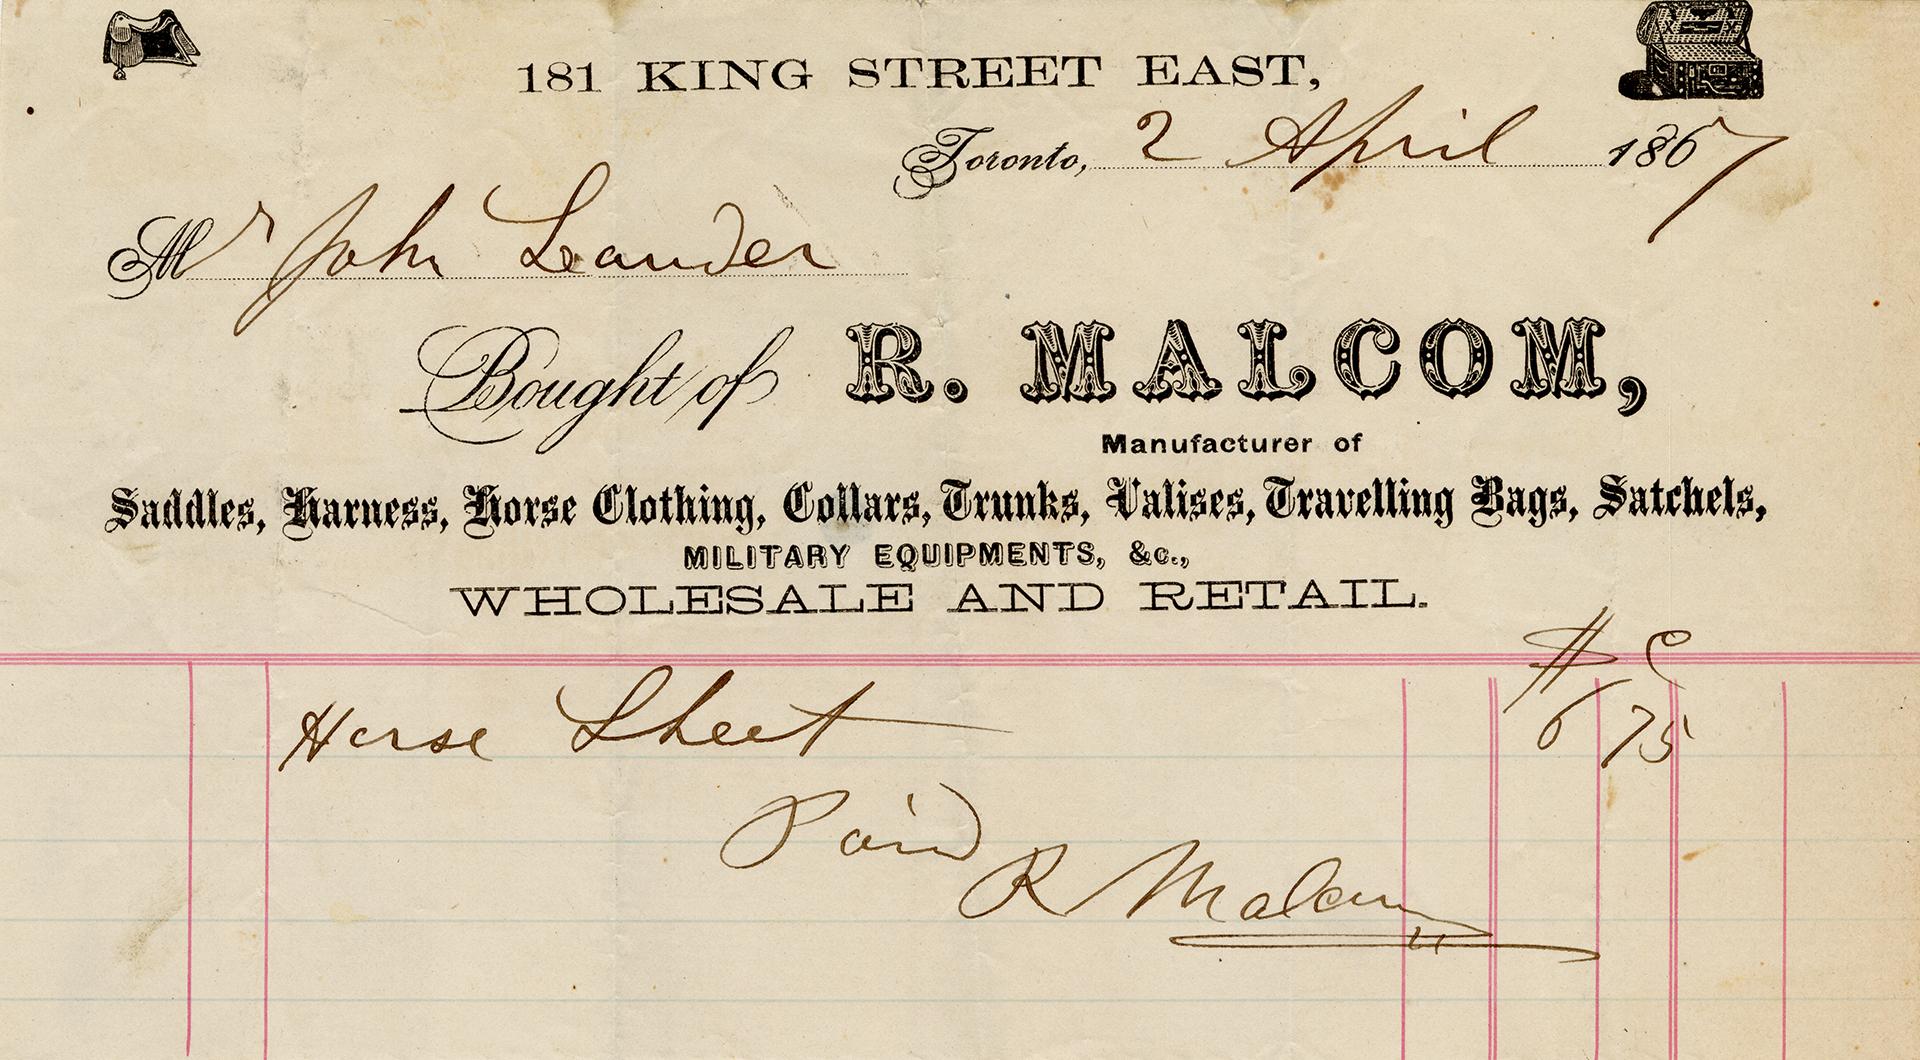 181 KING STREET EAST,
Toronto, 2 April 1867
Mr John Leander
Bought of R. MALCOM,
Manufacturer of
Saddles, Harness, Horse Clothing, Collars, Trunks, Valises, Travelling Bags, Satchels,
MILITARY EQUIPMENTS, &c.,
WHOLESALE AND RETAIL.
$ c
Horse Sheet 6 75
Paid
R Malcom